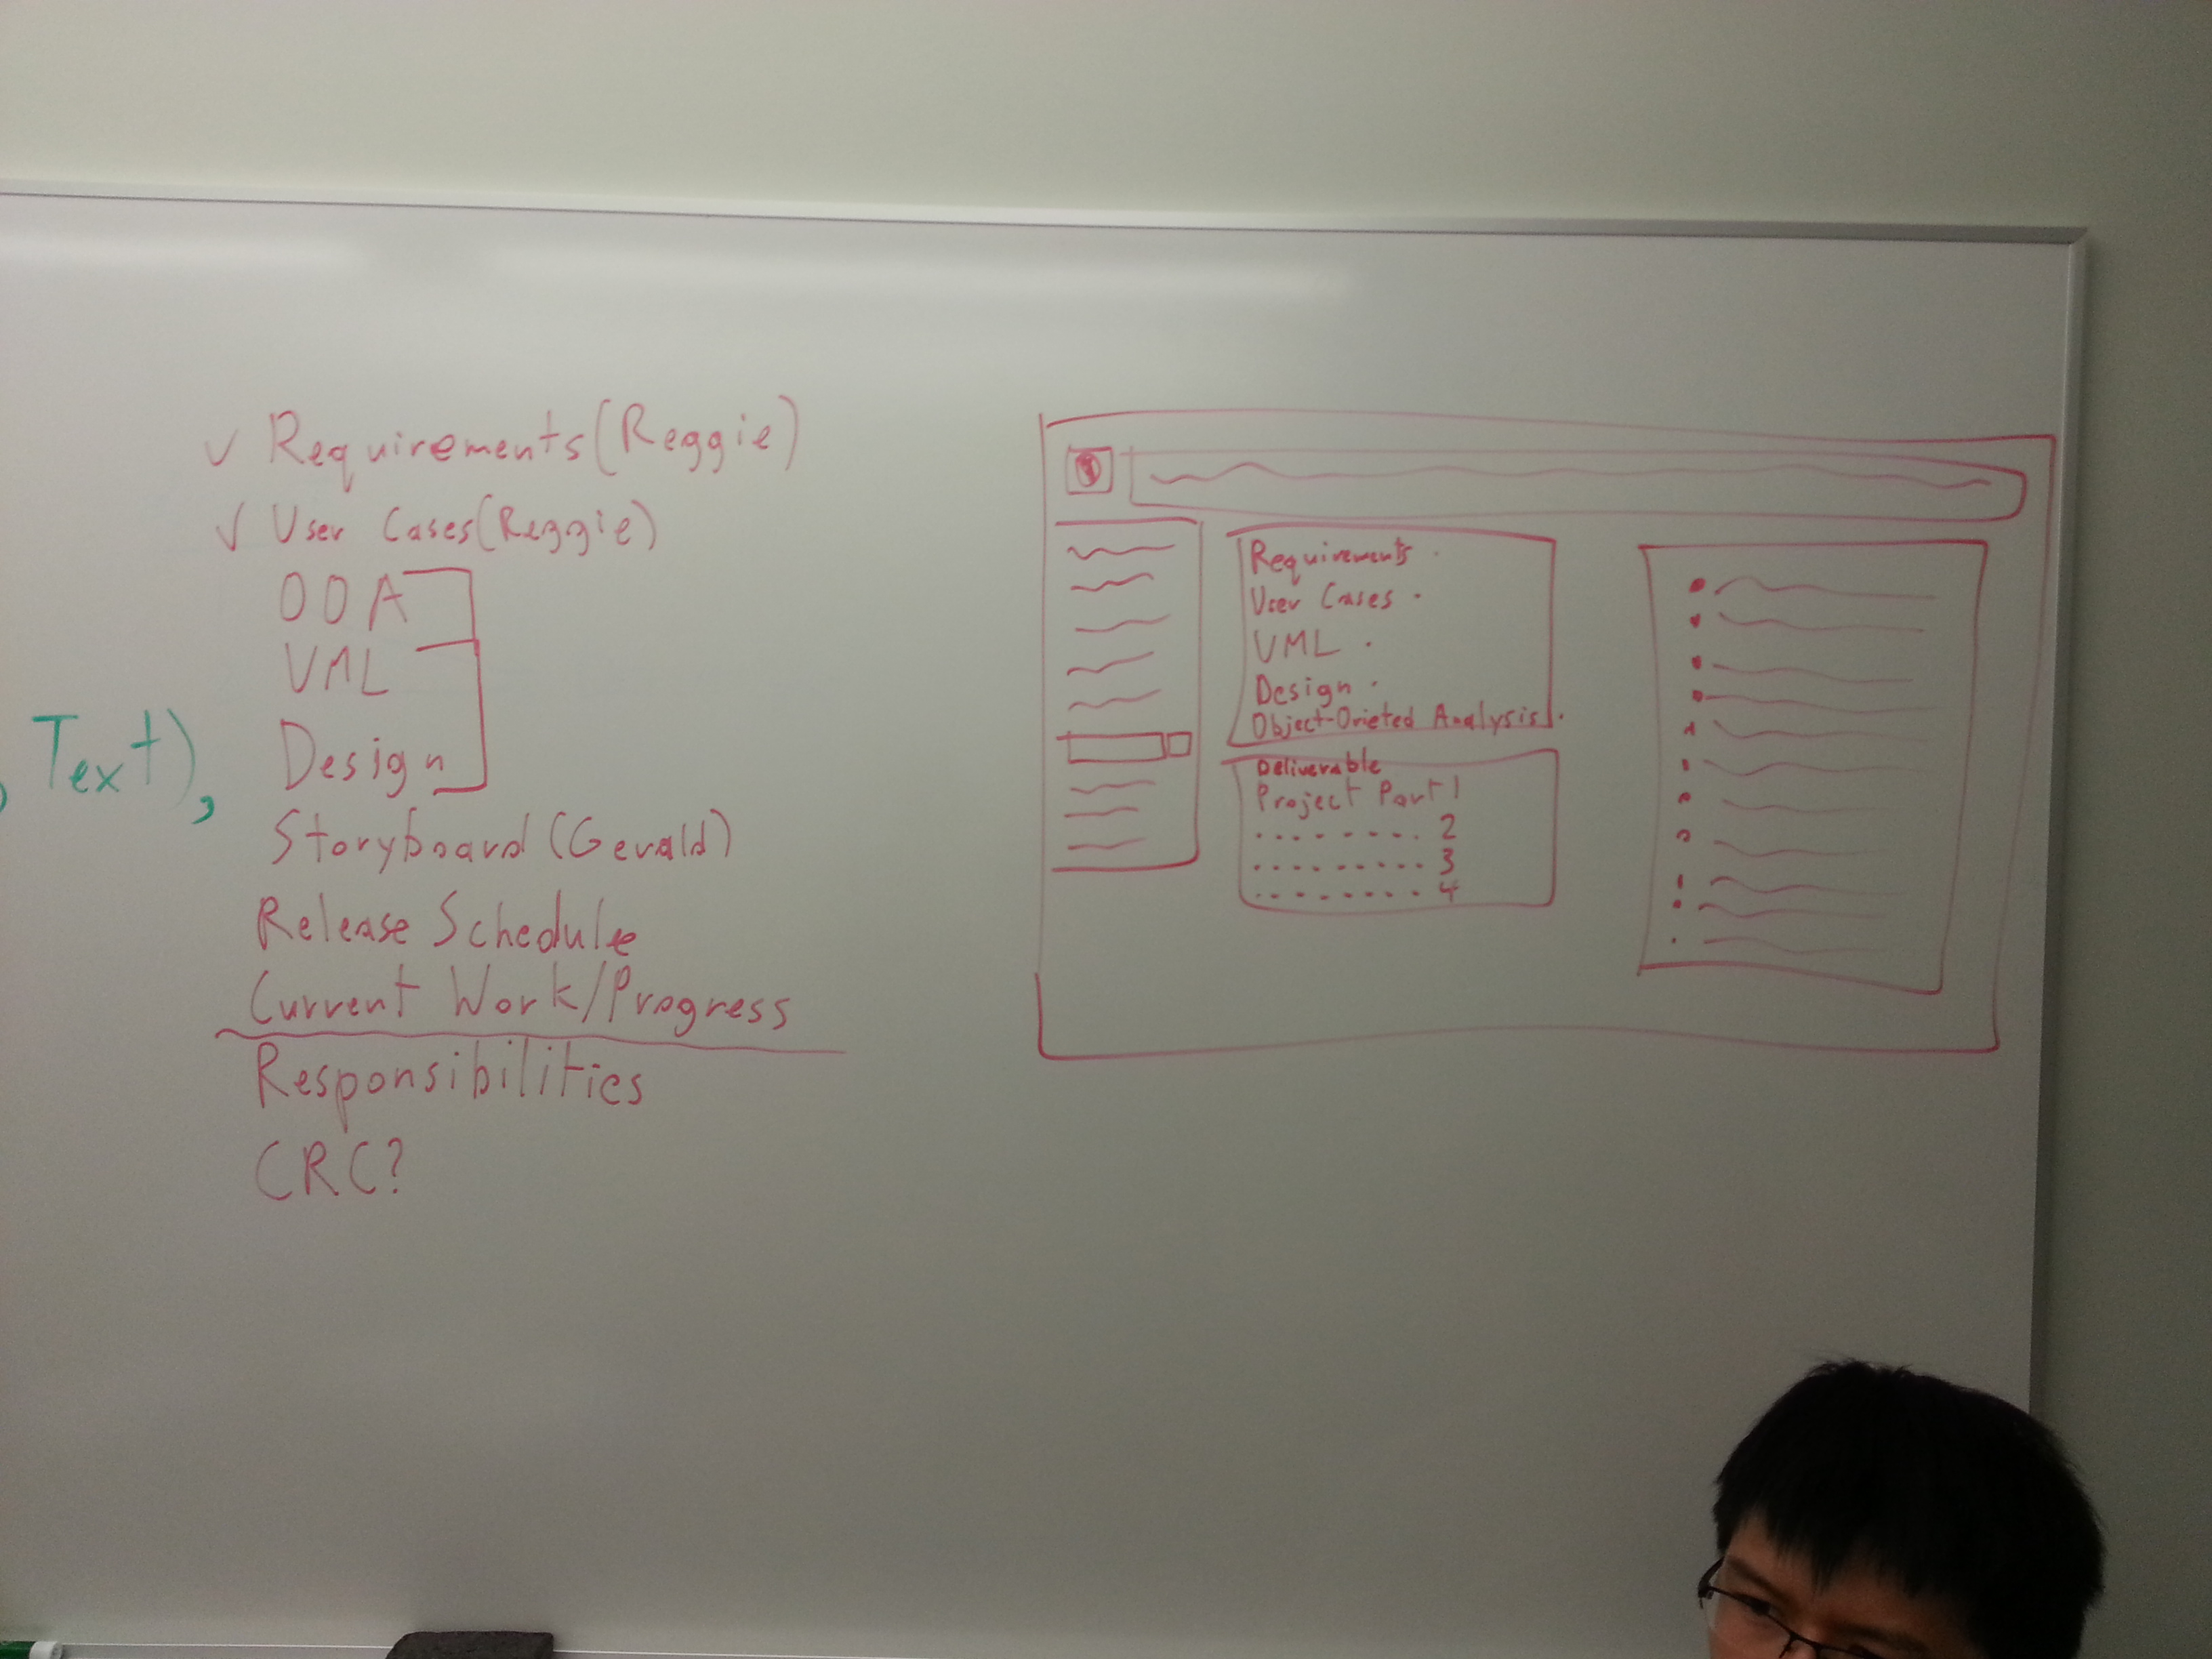 ✓ Requirements (Reggie)
✓ User Cases (Reggie)
OOA
UML
Design
Storyboard (Gerald)
Release Schedule
Current Work/Progress
Responsibilities
CRC?
Text),
Requirements
User Cases
UML
Design
Object-Orieted Analysis
Deliverable
Project Part 1
......... 2
.......... 3
......... 4